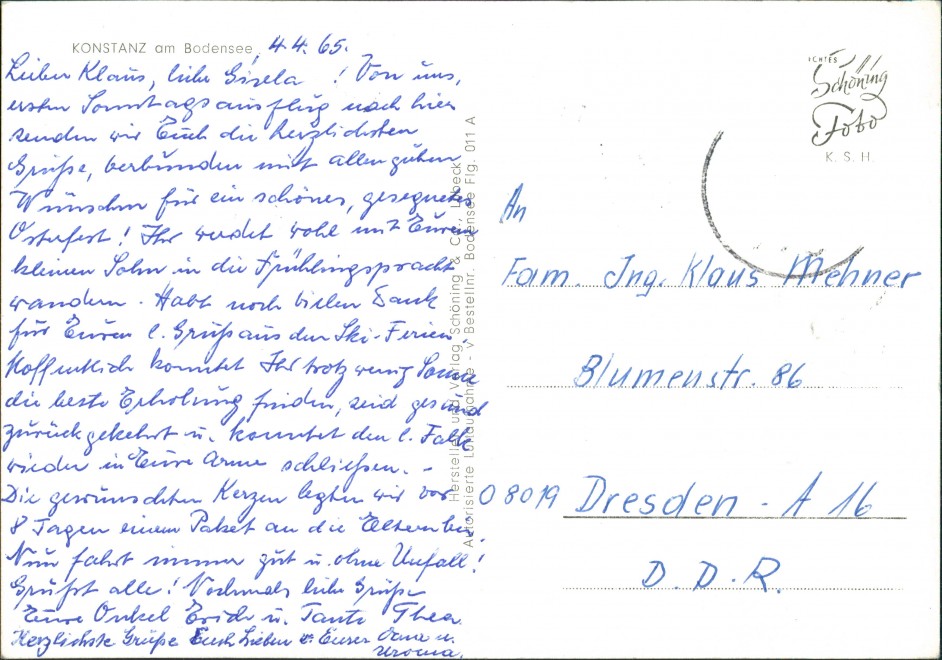 KONSTANZ am Bodensee, 4.4.65.
Lieber Klaus, liebe Gisela! Von uns.
ersten Sonntagsausflug nach hier
senden wir Euch die herzlichsten
Grüße, verbunden mit allen guten
Wünschen für ein schönes, gesegnetes
Osterfest! Ihr werdet wohl mit Eurem
kleinen Sohn in die Frühlingspracht
wandern. Habt noch vielen Dank
für Euren l. Gruß aus den Ski-Ferien
Hoffentlich konntet Ihr trotz wenig Sonne
die beste Erholung finden, seid gesund
zurückgekehrt u. konntet den l. Falk
wieder in Eure Arme schließen. –
Die gewünschten Kerzen legten wir vor
8 Tagen einem Paket an die Eltern bei.
Nun fahrt immer gut u. ohne Unfall!
Grüßt alle! Nochmals liebe Grüße
Eure Onkel Erich u. Tante Thea.
Herzlichste Grüße Euch Lieben v. Eurer Oma u.
Uroma.
Hersteller und Verlag Schöning & Co., Lübeck
Autorisierte Luftaufnahme - V Bestellnr. Bodensee Flg. 011 A
ECHTES
Schöning
Foto
K. S. H.
An
Fam. Ing. Klaus Mehner
Blumenstr. 86
08019 Dresden - A 16
D.D.R.